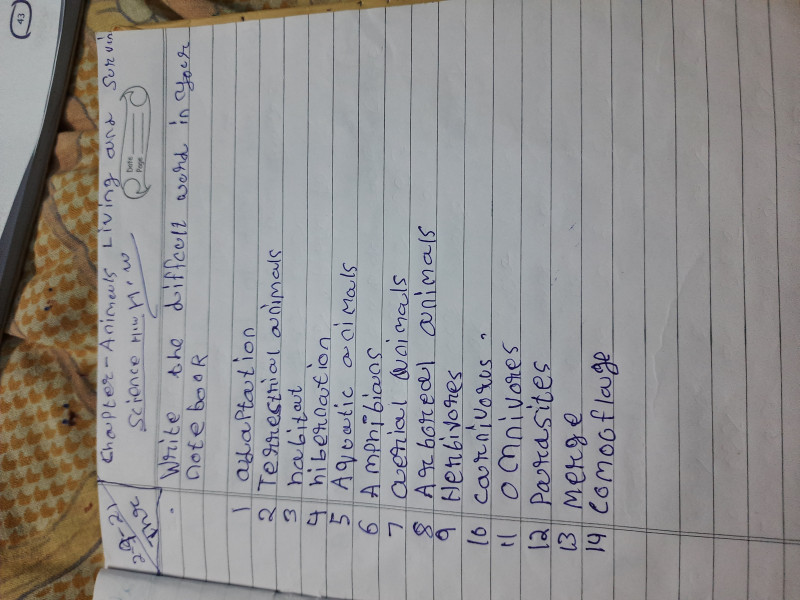 43
Chapter-Animals Living and Surviv
Science H.W H.W
Date
Page
Write the diffcult word in your
notebook
1 adaptation
2 Terrestrial animals
3 habitat
4 hibernation
5 Aquatic animals
6 Amphibians
7 aerial animals
8 Arboreal animals
9 Herbivores
10 carnivorus.
11 omnivores
12 Parasites
13 Merge
14 comoouflage